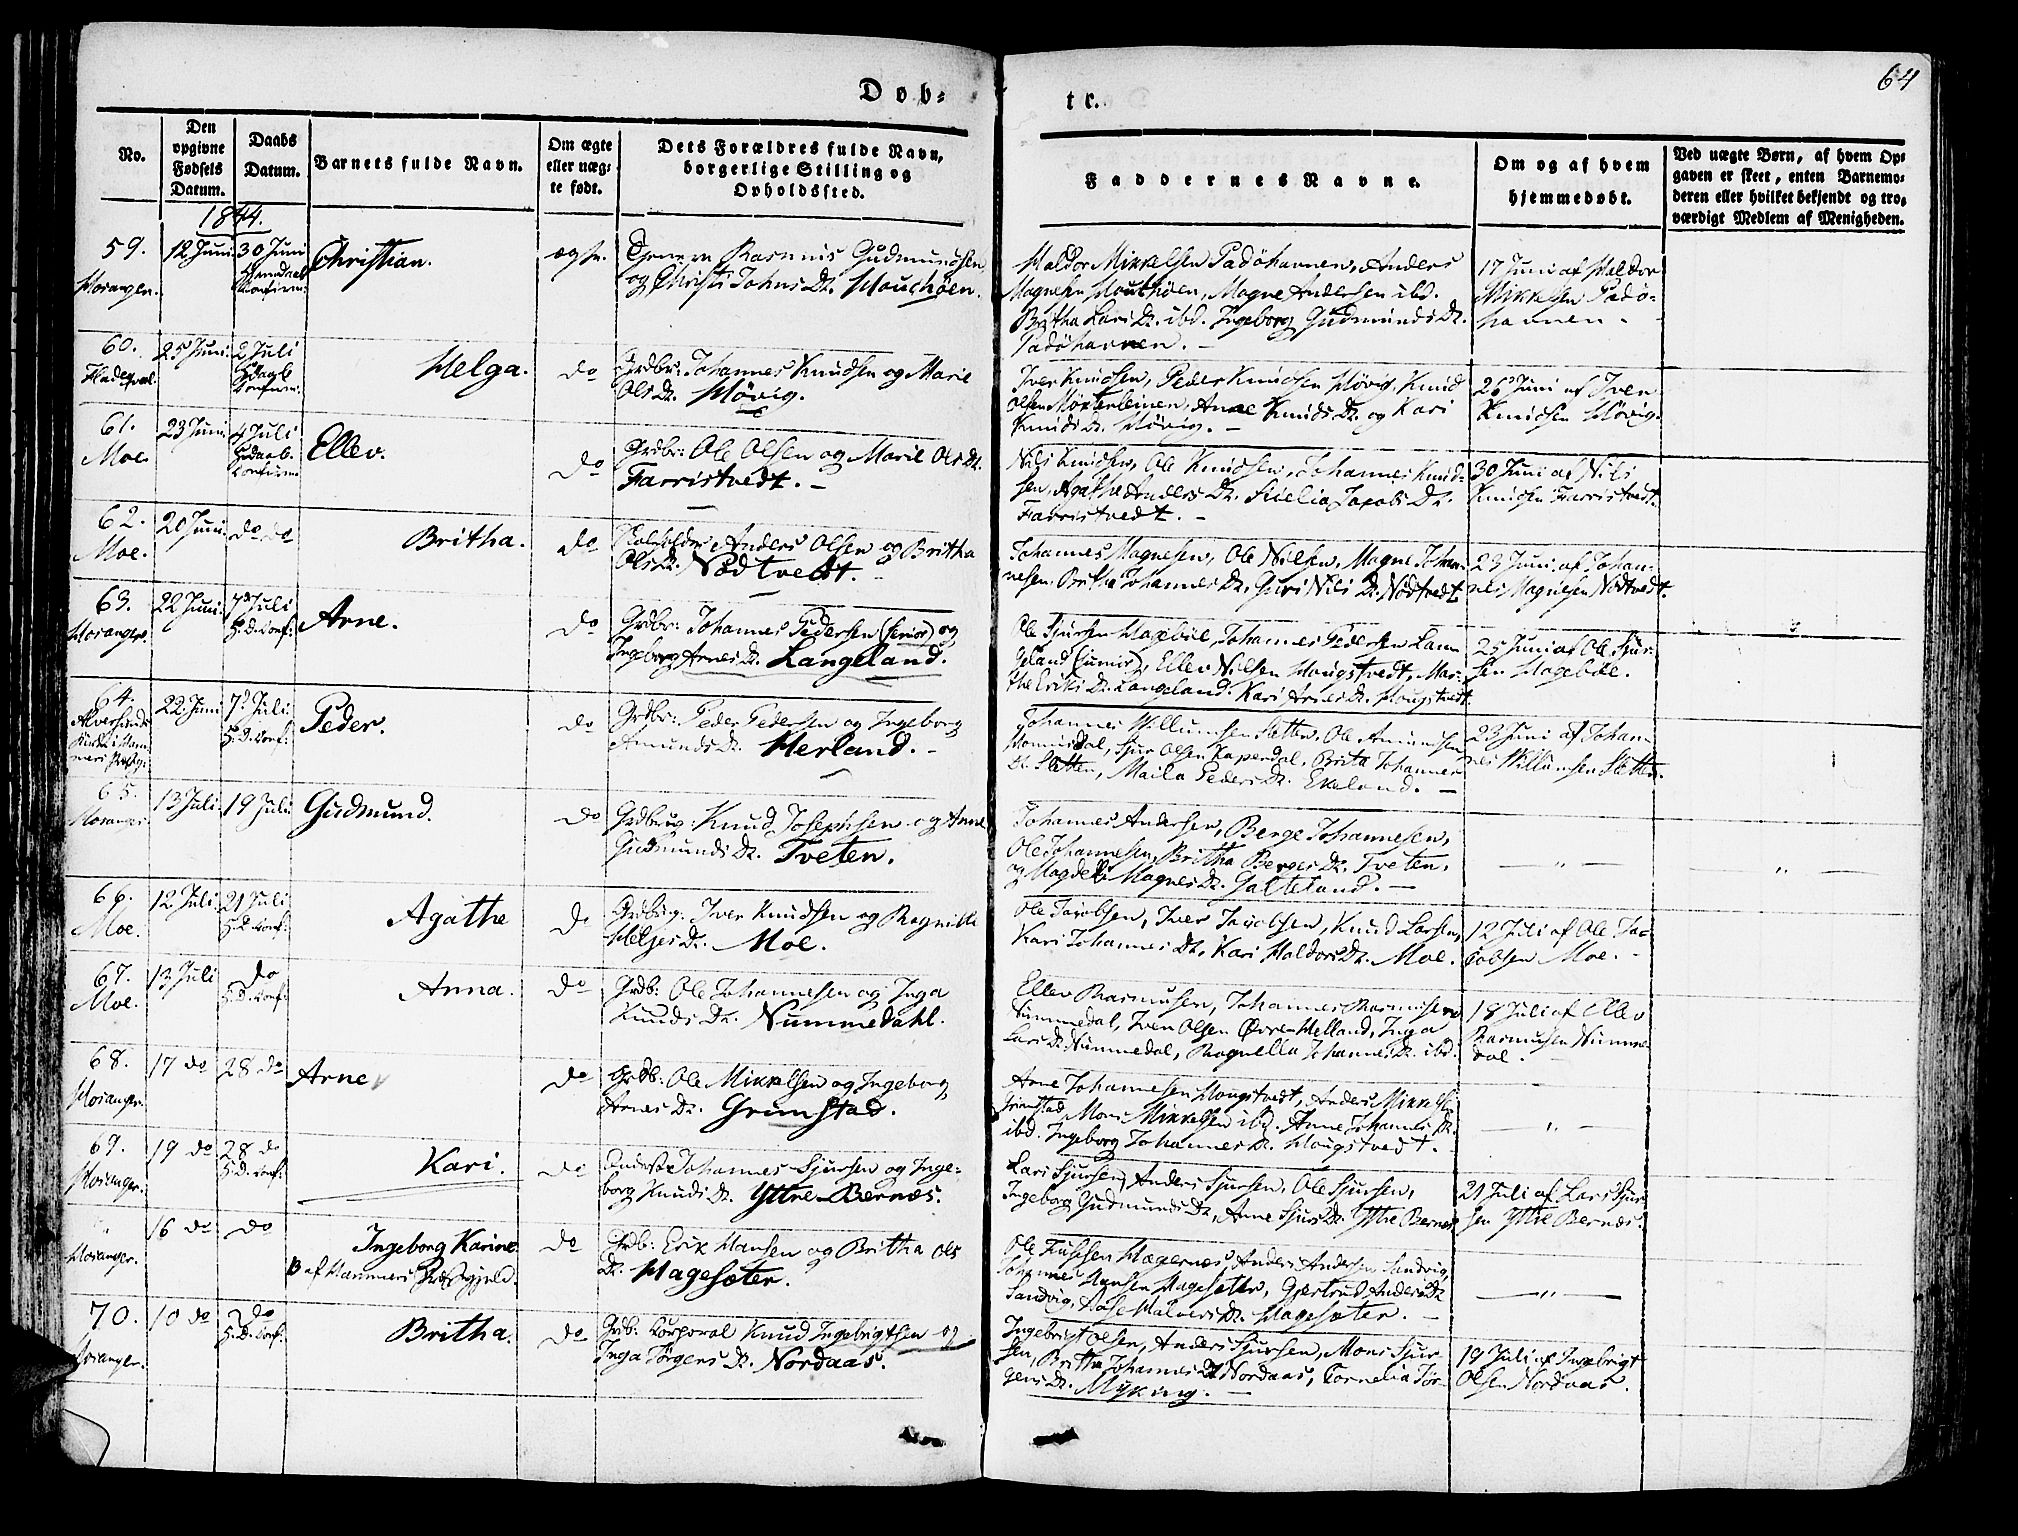 64
Døb-
te.
No.
Den opgivne Fødsels Datum.
Daabs Datum.
Barnets fulde Navn.
Om ægte eller uægte født.
Dets Forældres fulde Navn, borgerlige Stilling og Opholdssted.
Faddernes Navne.
Om og af hvem hjemmedøbt.
Ved uægte Børn, af hvem Opgaven er skeet, enten Barnemoderen eller hvilket bekjendt og troværdigt Medlem af Menigheden.
1844.
59. 12 Juni. 30 Juni Christian. ægte. Rasmus Gudmundsen
og Christi Johns Dr.
Haldor Mikkelsen Padøhavnen, Anders
Magnesen, Magne Andersen ibd.
Britha Lars Dr. ibd. Ingeborg Gudmunds Dr.
Padøhavnen. -
17 Juni af Haldor
Mikkelsen Padø-
havnen -
60. 25 Juni. 2 Juli Helga. do Grdbr: Johannes Knudsen og Marie
Ols Dr. Høvig.
Iver Knudsen, Peder Knudsen Høvig, Knud
Olsen, Anne Knuds Dr. og Kari
Knuds Dr. Høvig. -
26 Juni af Iver
Knudsen Høvig.
61. 23 Juni. 4 Juli Ellev. do Grdbr: Ole Olsen og Marie Ols Dr.
Moe.
Farristvedt. -
Nils Knudsen, Ole Knudsen, Johannes Knud-
sen, Agathe Anders Dr. Jacobs Dr.
Farristvedt. -
30 Juni af Nils
Knudsen Farristvedt.
62. 20 Juni. do do Britha. do Anders Olsen og Britha
Moe.
Ols Dr. Nødtvedt. -
Johannes Magnesen, Ole Nilsen, Magne Johan-
nesen, Britha Johannes Dr. Guri Nils Dr. Nødtvedt
23 Juni af Johan-
nes Magnesen Nødtvedt.
63. 22 Juni. 7 Juli Arne. do Grdbr: Johannes Pedersen (senior) og
Hosanger.
Ingeborg Arnes Dr. Langeland.
Ole Sjursen Hagebøe, Johannes Pedersen Lan-
geland (junior), Ellev Nilsen Hougstvedt, Mar-
the Eriks Dr. Langeland. Kari Arnes Dr. Hougstvedt.
25 Juni af Ole Sjur-
sen Hagebøe.
64. 22 Juni 7 Juli Peder. do Grdbr: Peder Pedersen og Ingeborg
Amunds Dr. Herland. -
Johannes Willumsen Sletten, Ole Amundsen
Sjur Olsen, Brita Johannes
Dr. Sletten, Maila Peders Dr. Ekeland. -
23 Juni af Johan-
nes Willumsen Sletten.
65. 13 Juli. 19 Juli. Gudmund. do Knud Josephsen og Anne
Hosanger.
Gudmunds Dr. Tveten.
Johannes Andersen, Berge Johannesen,
Ole Johannesen, Britha Berges Dr. Tveten,
og Magdeli Magnes Dr. Galteland. -
— „ —
„ —
66. 12 Juli. 21 Juli Agathe do Iver Knudsen og Ragnilde
Moe.
Helges Dr. Moe.
Ole Jacobsen, Iver Jacobsen, Knud Larsen,
Kari Johannes Dr., Kari Haldors Dr. Moe.
12 Juli af Ole Jac-
obsen Moe. -
67. 13 Juli do Anna. do Grdb: Ole Johannesen og Inga
Moe.
Knuds Dr. Nummedahl.
Ellev Rasmusen, Johannes Rasmusen
Nummedal, Iver Olsen Øvre-Helland, Inga
Lars Dr. Nummedal, Ragnella Johannes Dr. ibd.
18 Juli af Ellev
Rasmusen Numme-
dal. -
68. 17 do 28 do Arne do Grdb: Ole Mikkelsen og Ingeborg
Hosanger.
Arnes Dr. Grimstad.
Arne Johannesen Hougstvedt, Anders Mikkelsen
Grimstad, Mons Mikkelsen ibd. Anne Johannes Dr.
ibd. Ingeborg Johannes Dr. Hougstvedt.
— „ —
69. 19 do 28 do Kari. do Johannes Sjursen og Inge-
Hosanger.
borg Knuds Dr. Yttre-Bernæs.
Lars Sjursen, Anders Sjursen, Ole Sjursen,
Ingeborg Gudmunds Dr, Anne Sjurs Dr. Yttre Bernæs
21 Juli af Lars Sjur-
sen Yttre Bernæs.
„ 16 do do Ingeborg Karine do Grdb: Erik Hansen og Britha Ols
Hosanger. af Hammers Præstegjeld.
Dr. Hagesæter.
Anders Andersen Sandvig,
Johannes Hansen Hagesæter, Gjertrud Anders Dr.
Sandvig, Dr. Hagesæter. -
— „ —
70. 10 do do Britha. do Grdb: Corporal Knud Ingebrigtsen og
Hosanger.
Inga Jørgens Dr. Nordaas.
Ingebrigt Olsen, Anders Sjursen, Mons Sjur-
sen, Britha Johannes Dr. Nordaas, Cornelia Jør-
gens Dr. Myking. -
19 Juli af Ingebrigt
Olsen Nordaas.